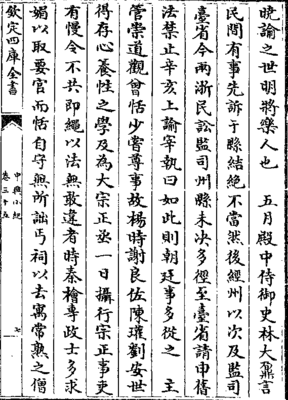 曉諭之世明將樂人也　五月殿中侍御史林大鼐言
民間有事先訴于縣結絶不當然後經州以次及監司
臺省今兩浙民訟監司州縣未決多徑至臺省請申舊
法禁止辛亥上諭宰執曰如此則朝廷事多從之　主
管崇道觀曾恬少嘗尊事故楊時謝良佐陳瓘劉安世
得存心養性之學及為大宗正丞一日攝行宗正事吏
有慢令不共即繩以法無敢違者時秦檜專政士多求
媚以取要官而恬自守無所詘丐祠以去寓常熟之僧
欽定四庫全書
中興小紀
卷三十五
七